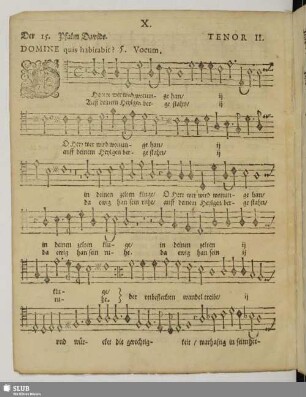 X.
Der 15. Psalm Davids. TENOR II.
DOMINE quis habitabit? 5. Vocum.
Herr wer wird wonun- ge han/ ij
Auff deinem Heyligen ber- ge stahn/ ij
O Herr wer wird wonun- ge han/ ij
auff deinem Heyligen ber- ge stahn/ ij
in deinen zelten O Herr wer wird wonun- ge han/
da ewig han sein ruhe/ auff deinem Heyligen ber- ge stahn/
in deinen zelten ge/ in deinen zelten ij
da ewig han sein ruhe/ da ewig han sein ij
ge/
ru- he. der unbefleckten wandel treibt/ ij
und wür- cket die gerechtig- keit/ warhafftig in
SLUB